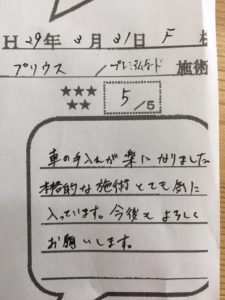 H 29年 3月 31日 F 様
プリウス / プレミアムコート 施術
★★★
★★
5 /5
車の手入れが楽になりました
本格的な施術とても気に
入っています。今後もよろしく
お願いします。